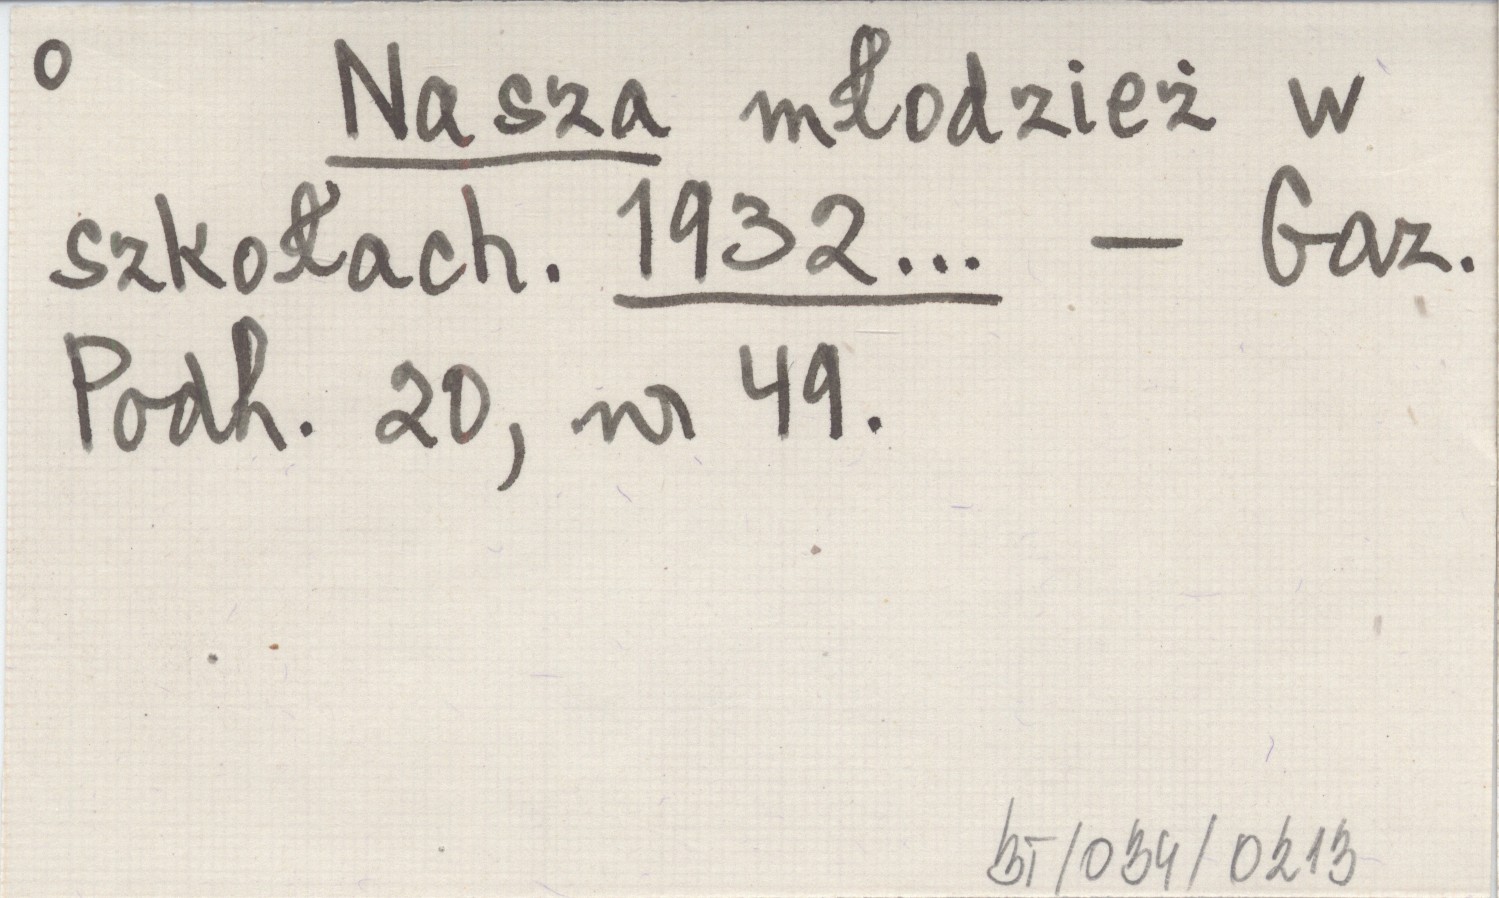 o Nasza młodzież w
szkołach. 1932... — Gaz.
Podh. 20, nr 49.
BT/034/0213